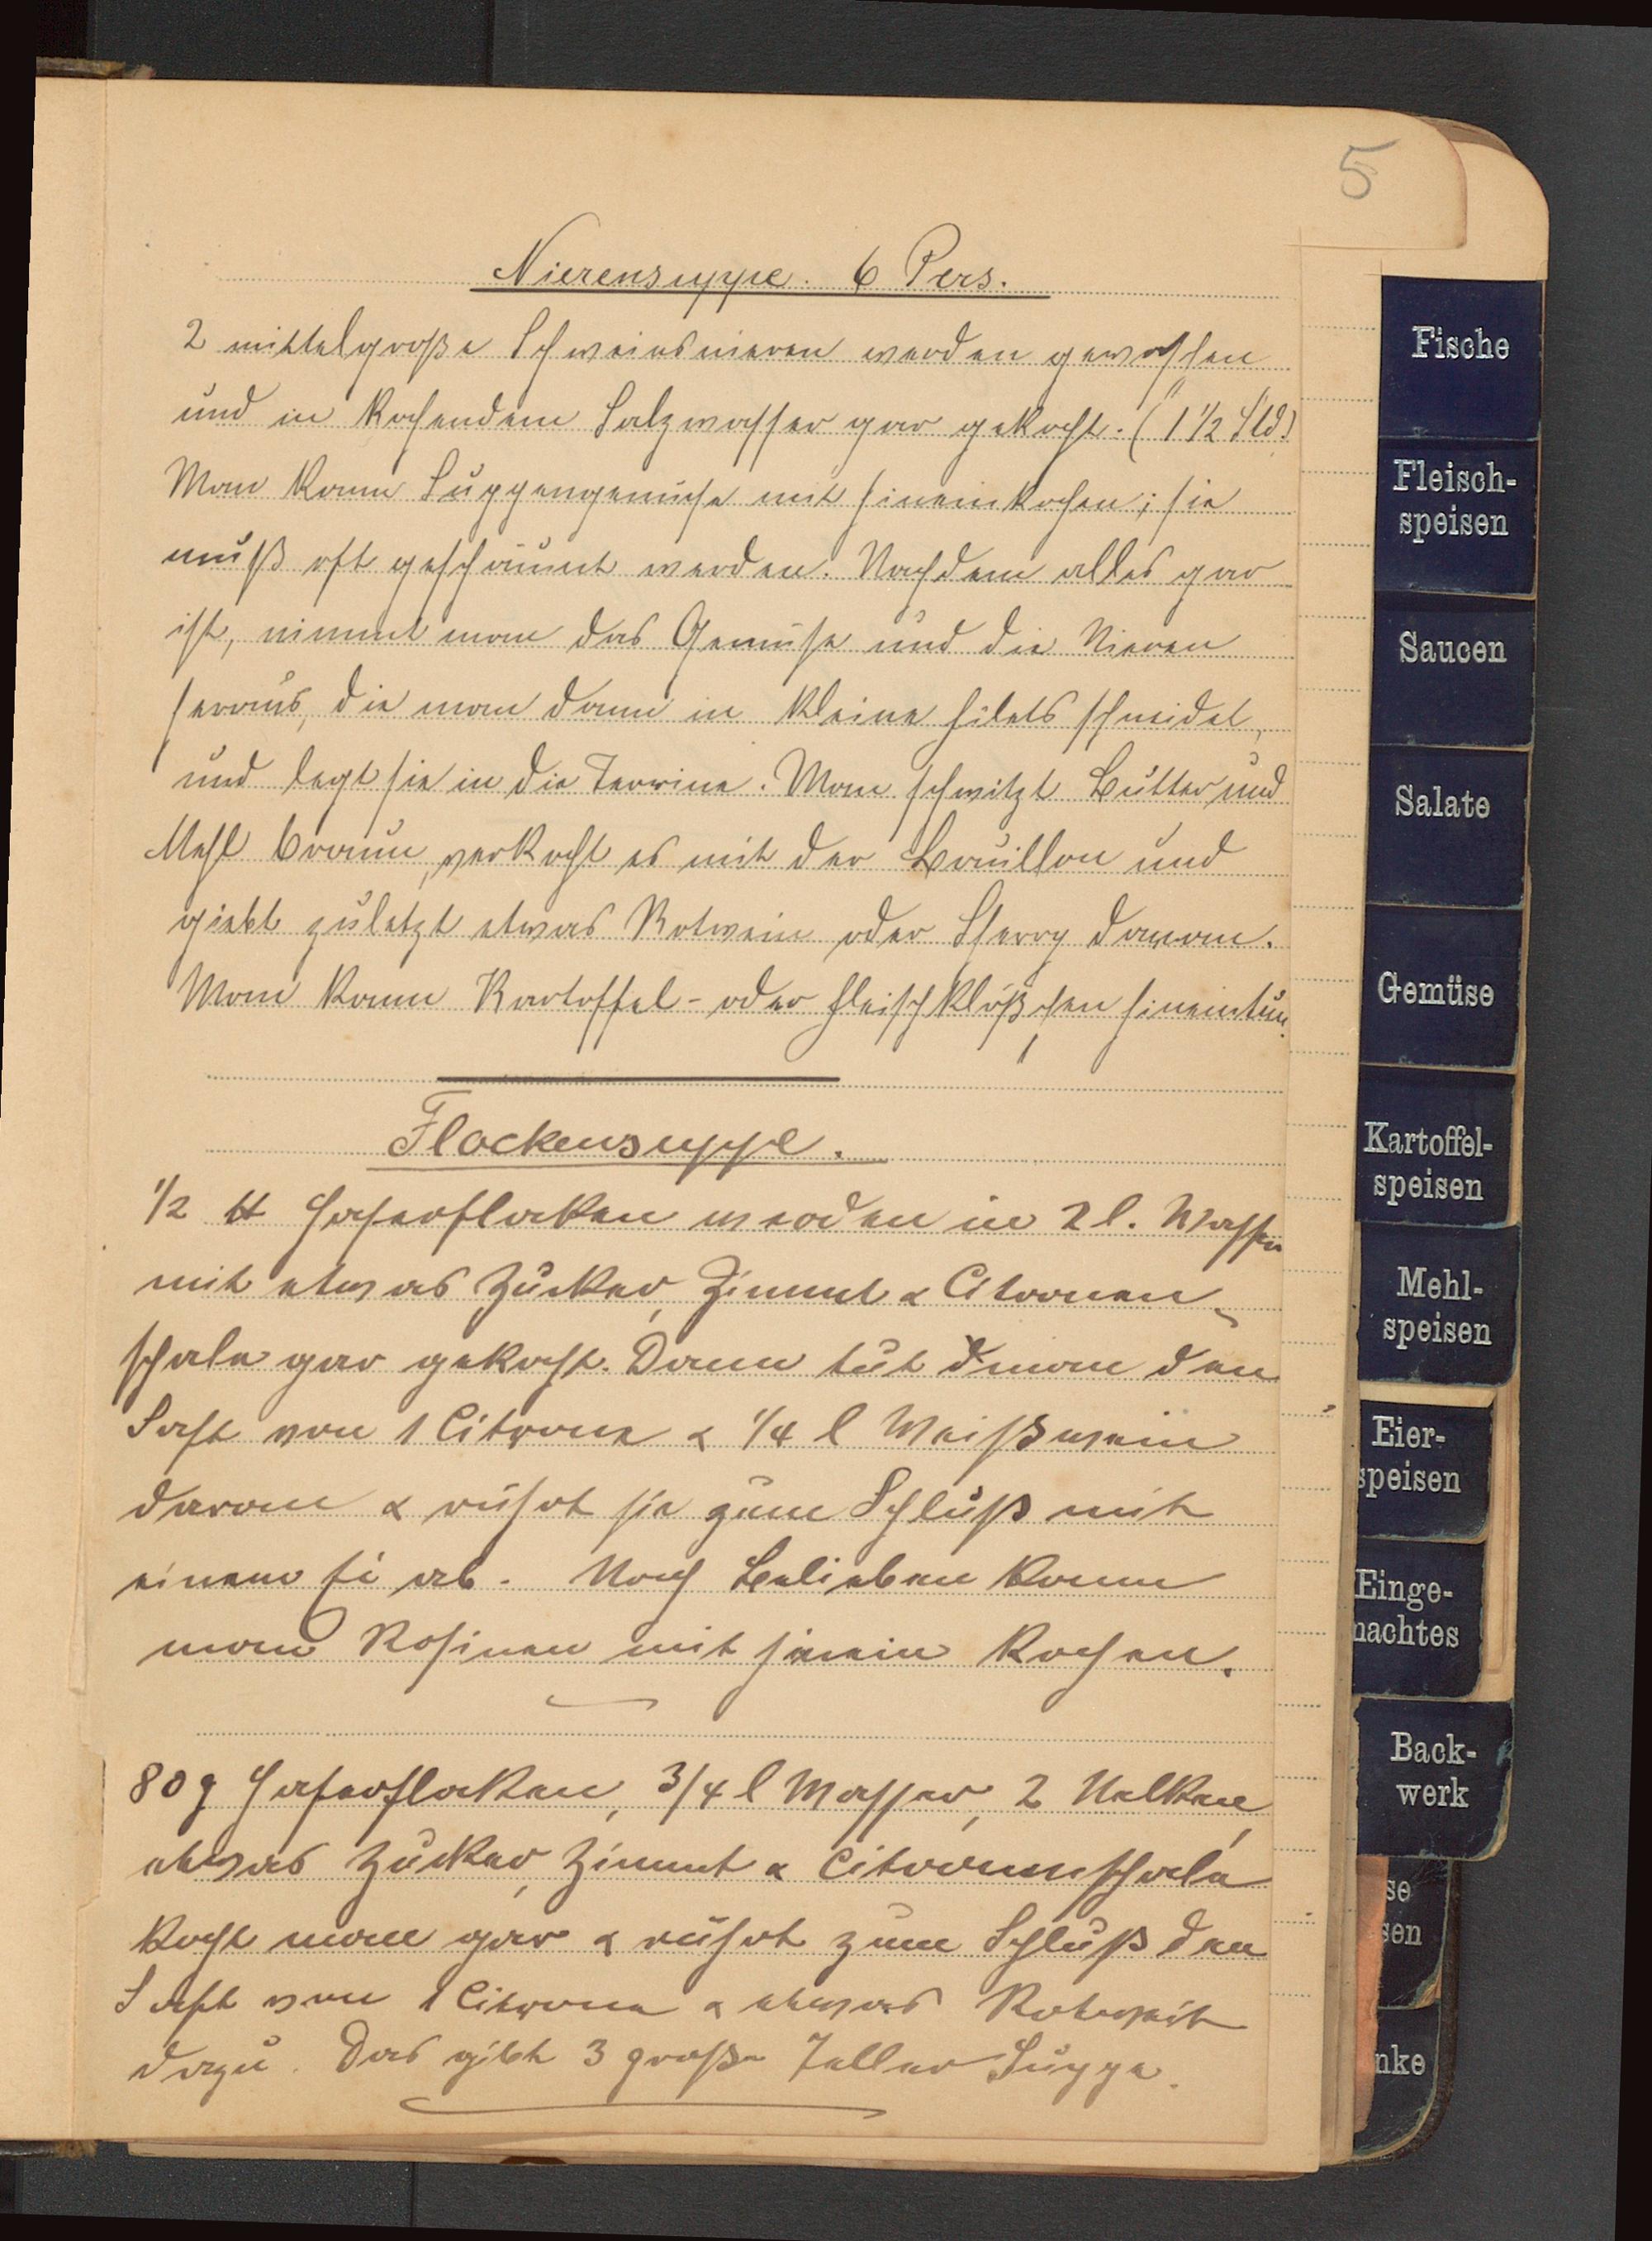 5
Nierensuppe. 6 Pers.
2 mittelgroße Schweinsnieren werden gewaschen
und in kochendem Salzwasser gar gekocht. (1 1/2 Std.)
Man kann Suppengemüse mit hineinkochen; sie
muß oft geschäumt werden. Nachdem alles gar
ist, nimmt man das Gemüse und die Nieren
heraus, die man dann in kleine Filets schneidet,
und legt sie in die Terrine. Man schwitzt Butter und
Mehl braun, verkocht es mit der Bouillon und
giebt zuletzt etwas Rotwein oder Sherry daran.
Man kann Kartoffel- oder Fleischklößchen hineintun.
Flockensuppe.
1/2 ℔ Haferflocken werden in 2 l. Wasser
mit etwas Zucker, Zimmt & Citronen-
schale gar gekocht. Dann tut man den
Saft von 1 Citrone & 1/4 l Weißwein
daran & rührt sie zum Schluß mit
einem Ei ab. Nach Belieben kann
man Rosinen mit hinein kochen.
80 g Haferflocken, 3/4 l Wasser, 2 Nelken,
etwas Zucker, Zimmt & Citronenschale
kocht man gar & rührt zum Schluß den
Saft von 1 Citrone & etwas Rotwein
dazu. Das gibt 3 große Teller Suppe.
Fische
Fleisch-
speisen
Saucen
Salate
Gemüse
Kartoffel-
speisen
Mehl-
speisen
Eier-
speisen
Einge-
machtes
Back-
werk
se
sen
nke